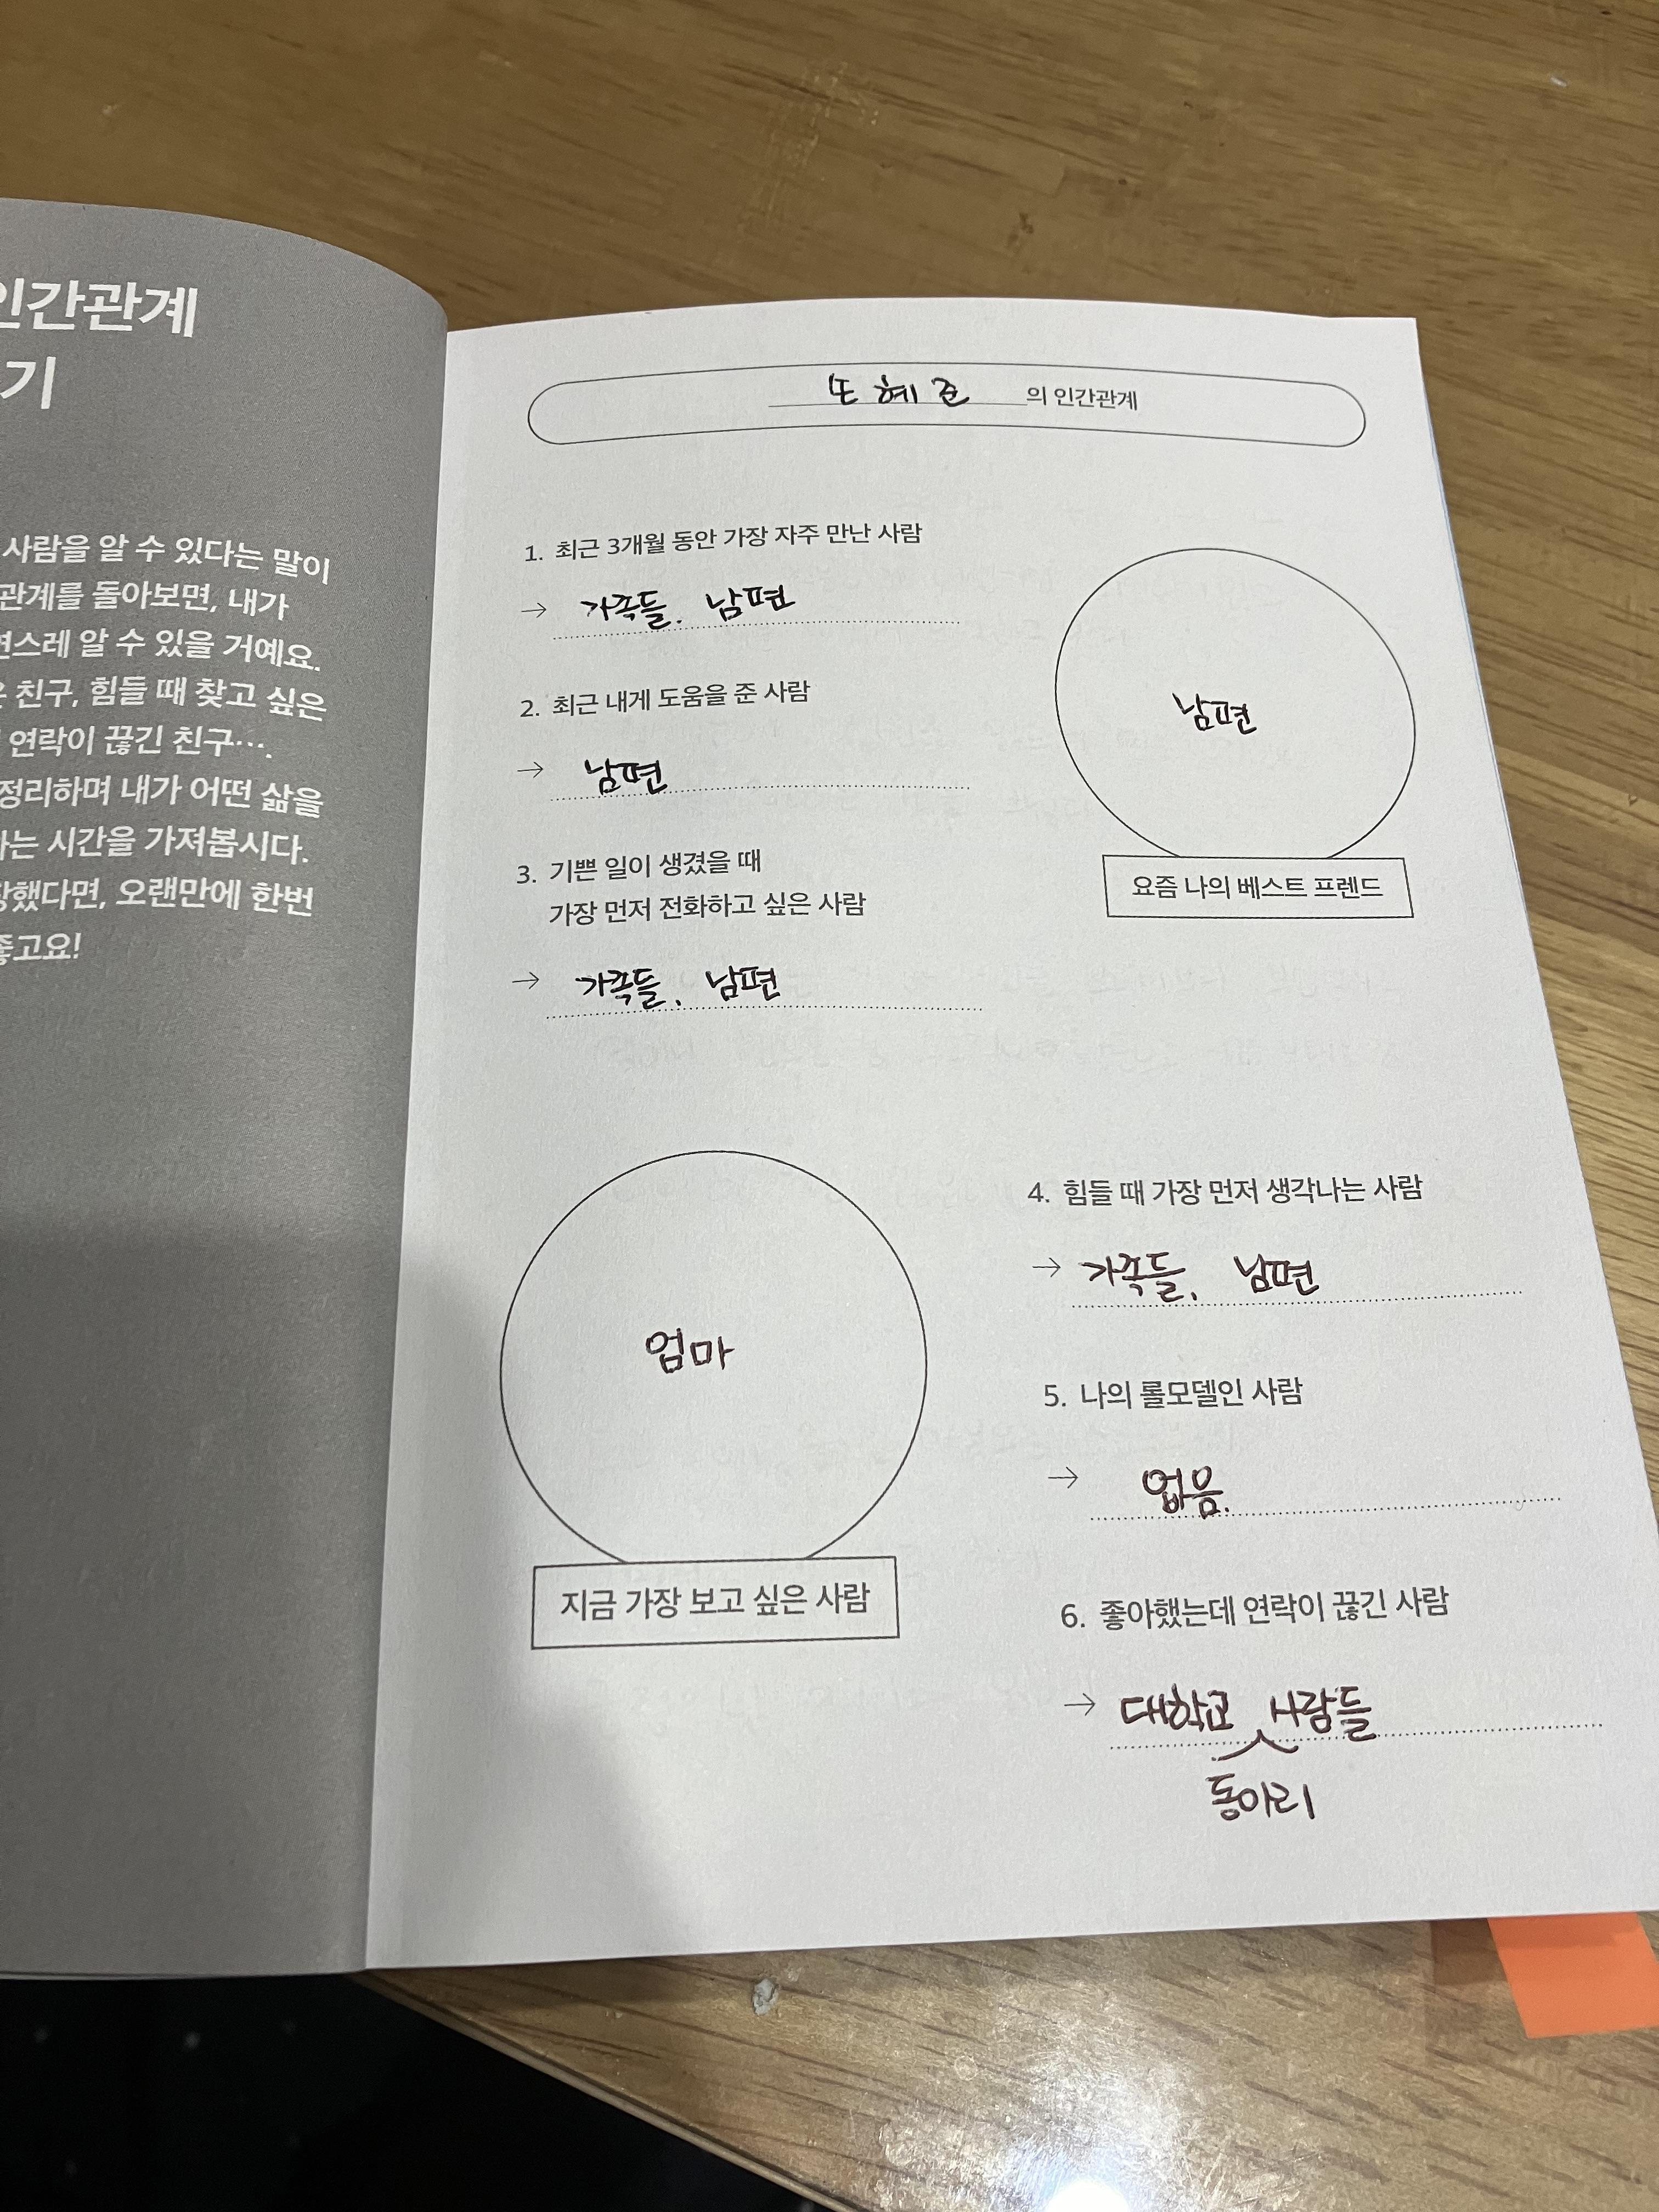 인간관계
기
사람을 알 수 있다는 말이
관계를 돌아보면, 내가
연스레 알 수 있을 거예요.
친구, 힘들 때 찾고 싶은
연락이 끊긴 친구….
정리하며 내가 어떤 삶을
하는 시간을 가져봅시다.
했다면, 오랜만에 한번
좋고요!
혜 의 인간관계
1. 최근 3개월 동안 가장 자주 만난 사람
→ 가족들, 남편
2. 최근 내게 도움을 준 사람
→ 남편
3. 기쁜 일이 생겼을 때
가장 먼저 전화하고 싶은 사람
→ 가족들, 남편
남편
요즘 나의 베스트 프렌드
엄마
지금 가장 보고 싶은 사람
4. 힘들 때 가장 먼저 생각나는 사람
→ 가족들, 남편
5. 나의 롤모델인 사람
→ 없음.
6. 좋아했는데 연락이 끊긴 사람
→ 대학교 사람들
동아리